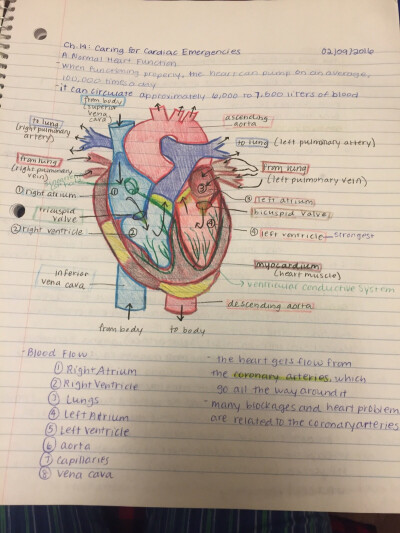 Ch. 19: Caring for Cardiac Emergencies
02/09/2016
A Normal Heart Function
- When functioning properly, the heart can pump on an average,
100,000 times a day
- it can circulate approximately 6,000 to 7,500 liters of blood
from body
(superior
vena
cava)
ascending
aorta
to lung
(right pulmonary
artery)
to lung (left pulmonary artery)
from lung
(right pulmonary
vein)
from lung
(left pulmonary vein)
① right atrium
③ left atrium
tricuspid
valve
bicuspid valve
② right ventricle
④ left ventricle - strongest
myocardium
(heart muscle)
inferior
vena cava
ventricular conductive system
descending aorta
from body
to body
① ② ③ ④
- Blood Flow
① Right Atrium
② Right Ventricle
③ Lungs
④ Left Atrium
⑤ Left Ventricle
⑥ aorta
⑦ Capillaries
⑧ vena cava
- the heart gets flow from
the coronary arteries, which
go all the way around it
- many blockages and heart problem
are related to the coronary arteries